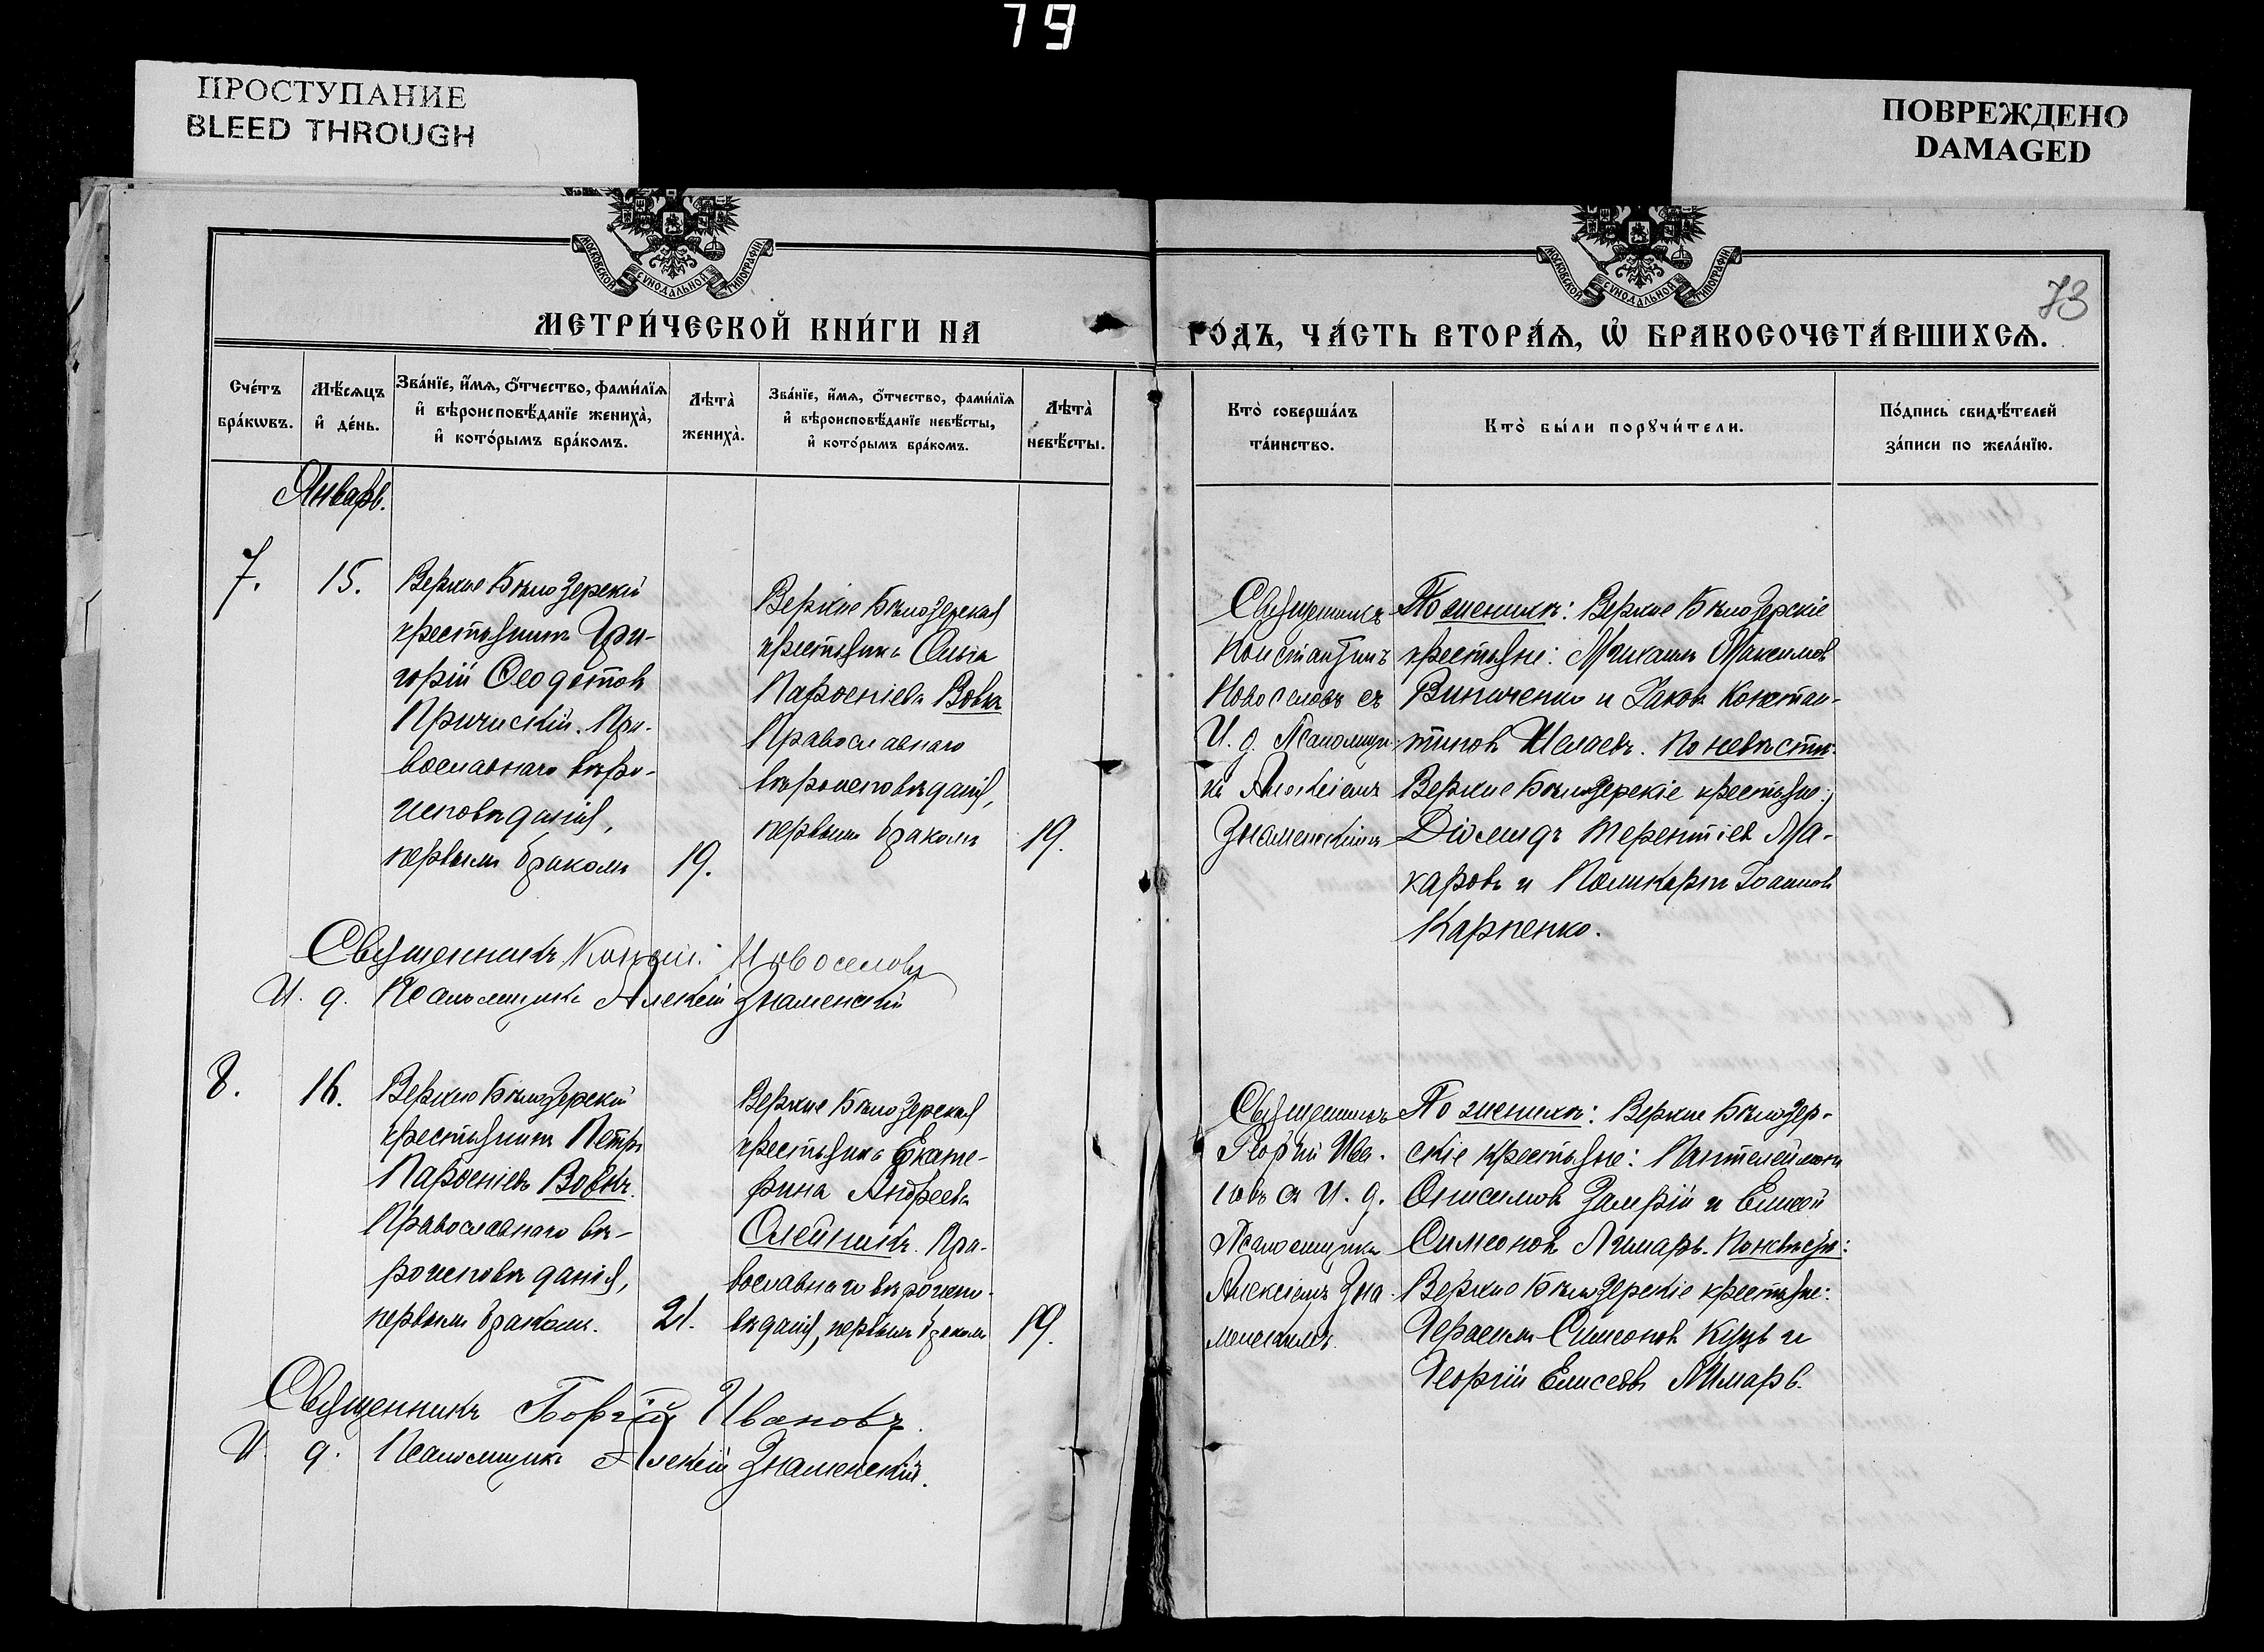 79
ПРОСТУПАНИЕ
BLEED THROUGH
ПОВРЕЖДЕНО
DAMAGED
МОСКОВСКОЙ СУНОДАЛЬНОЙ ТИПОГРАФІИ
МОСКОВСКОЙ СУНОДАЛЬНОЙ ТИПОГРАФІИ
73
МЕТРИ́ЧЕСКОЙ КНИ́ГИ НА
ГО́ДЪ, ЧА́СТЬ ВТОРА́Ѧ, Ѡ БРАКОСОЧЕТА́ВШИХСѦ.
Сче́тъ
бра́кѡвъ.
Мѣ́сѧцъ
и҆ де́нь.
Зва́нїе, и҆́мѧ, ѻ҆́тчество, фами́лїѧ
и҆ вѣроисповѣ́данїе жениха̀,
и҆ кото́рымъ бра́комъ.
Лѣта̀
жениха̀.
Зва́нїе, и҆́мѧ, ѻ҆́тчество, фами́лїѧ
и҆ вѣроисповѣ́данїе невѣ́сты,
и҆ кото́рымъ бра́комъ.
Лѣта̀
невѣ́сты.
Кто̀ соверша́лъ
та́инство.
Кто̀ бы́ли порꙋчи́тели.
По́дпись свидѣ́телей
за́писи по жела́нїю.
Январь.
7.
15.
Верхне Бѣлозерскій
крестьянинъ Гри-
горій Ѳеодотовъ
Причискій. Пра-
вославнаго вѣро-
исповѣданія,
первымъ бракомъ
19.
Верхне Бѣлозерская
крестьянка Ольга
Парѳеніева Вовкъ
Православнаго
вѣроисповѣданія,
первымъ бракомъ
19.
Священникъ
Константинъ
Новоселовъ съ
И. д. Псаломщи-
ка Алексіемъ
Знаменскимъ
По женихѣ: Верхне Бѣлозерскіе
крестьяне: Михаилъ Максимовъ
Винниченко и Іаковъ Констан-
тиновъ Исаевъ. По невѣстѣ:
Верхне Бѣлозерскіе крестьяне:
Діомидъ Терентіевъ Ма-
каровъ и Поликарпъ Іоанновъ
Карпенко.
Священникъ Конст. Новоселовъ
И. д. Псаломщика Алексій Знаменскій
8.
16.
Верхне Бѣлозерскій
крестьянинъ Петръ
Парѳеніевъ Вовкъ.
Православнаго вѣ-
роисповѣданія,
первымъ бракомъ.
21.
Верхне Бѣлозерская
крестьянка Екате-
рина Андреева
Олейникъ. Пра-
вославнаго вѣроиспо-
вѣданія, первымъ бракомъ
19.
Священникъ
Георгій Ива-
новъ съ И. д.
Псаломщика
Алексіемъ Зна-
менскимъ.
По женихѣ: Верхне Бѣлозер-
скіе крестьяне: Пантелеймонъ
Онисимовъ и Елисей
Симеоновъ Лимарь. По невѣстѣ:
Верхне Бѣлозерскіе крестьяне:
Герасимъ Симеоновъ Куцъ и
Георгій Елисеевъ Лимарь.
Священникъ Георгій Ивановъ.
И. д. Псаломщика Алексій Знаменскій.